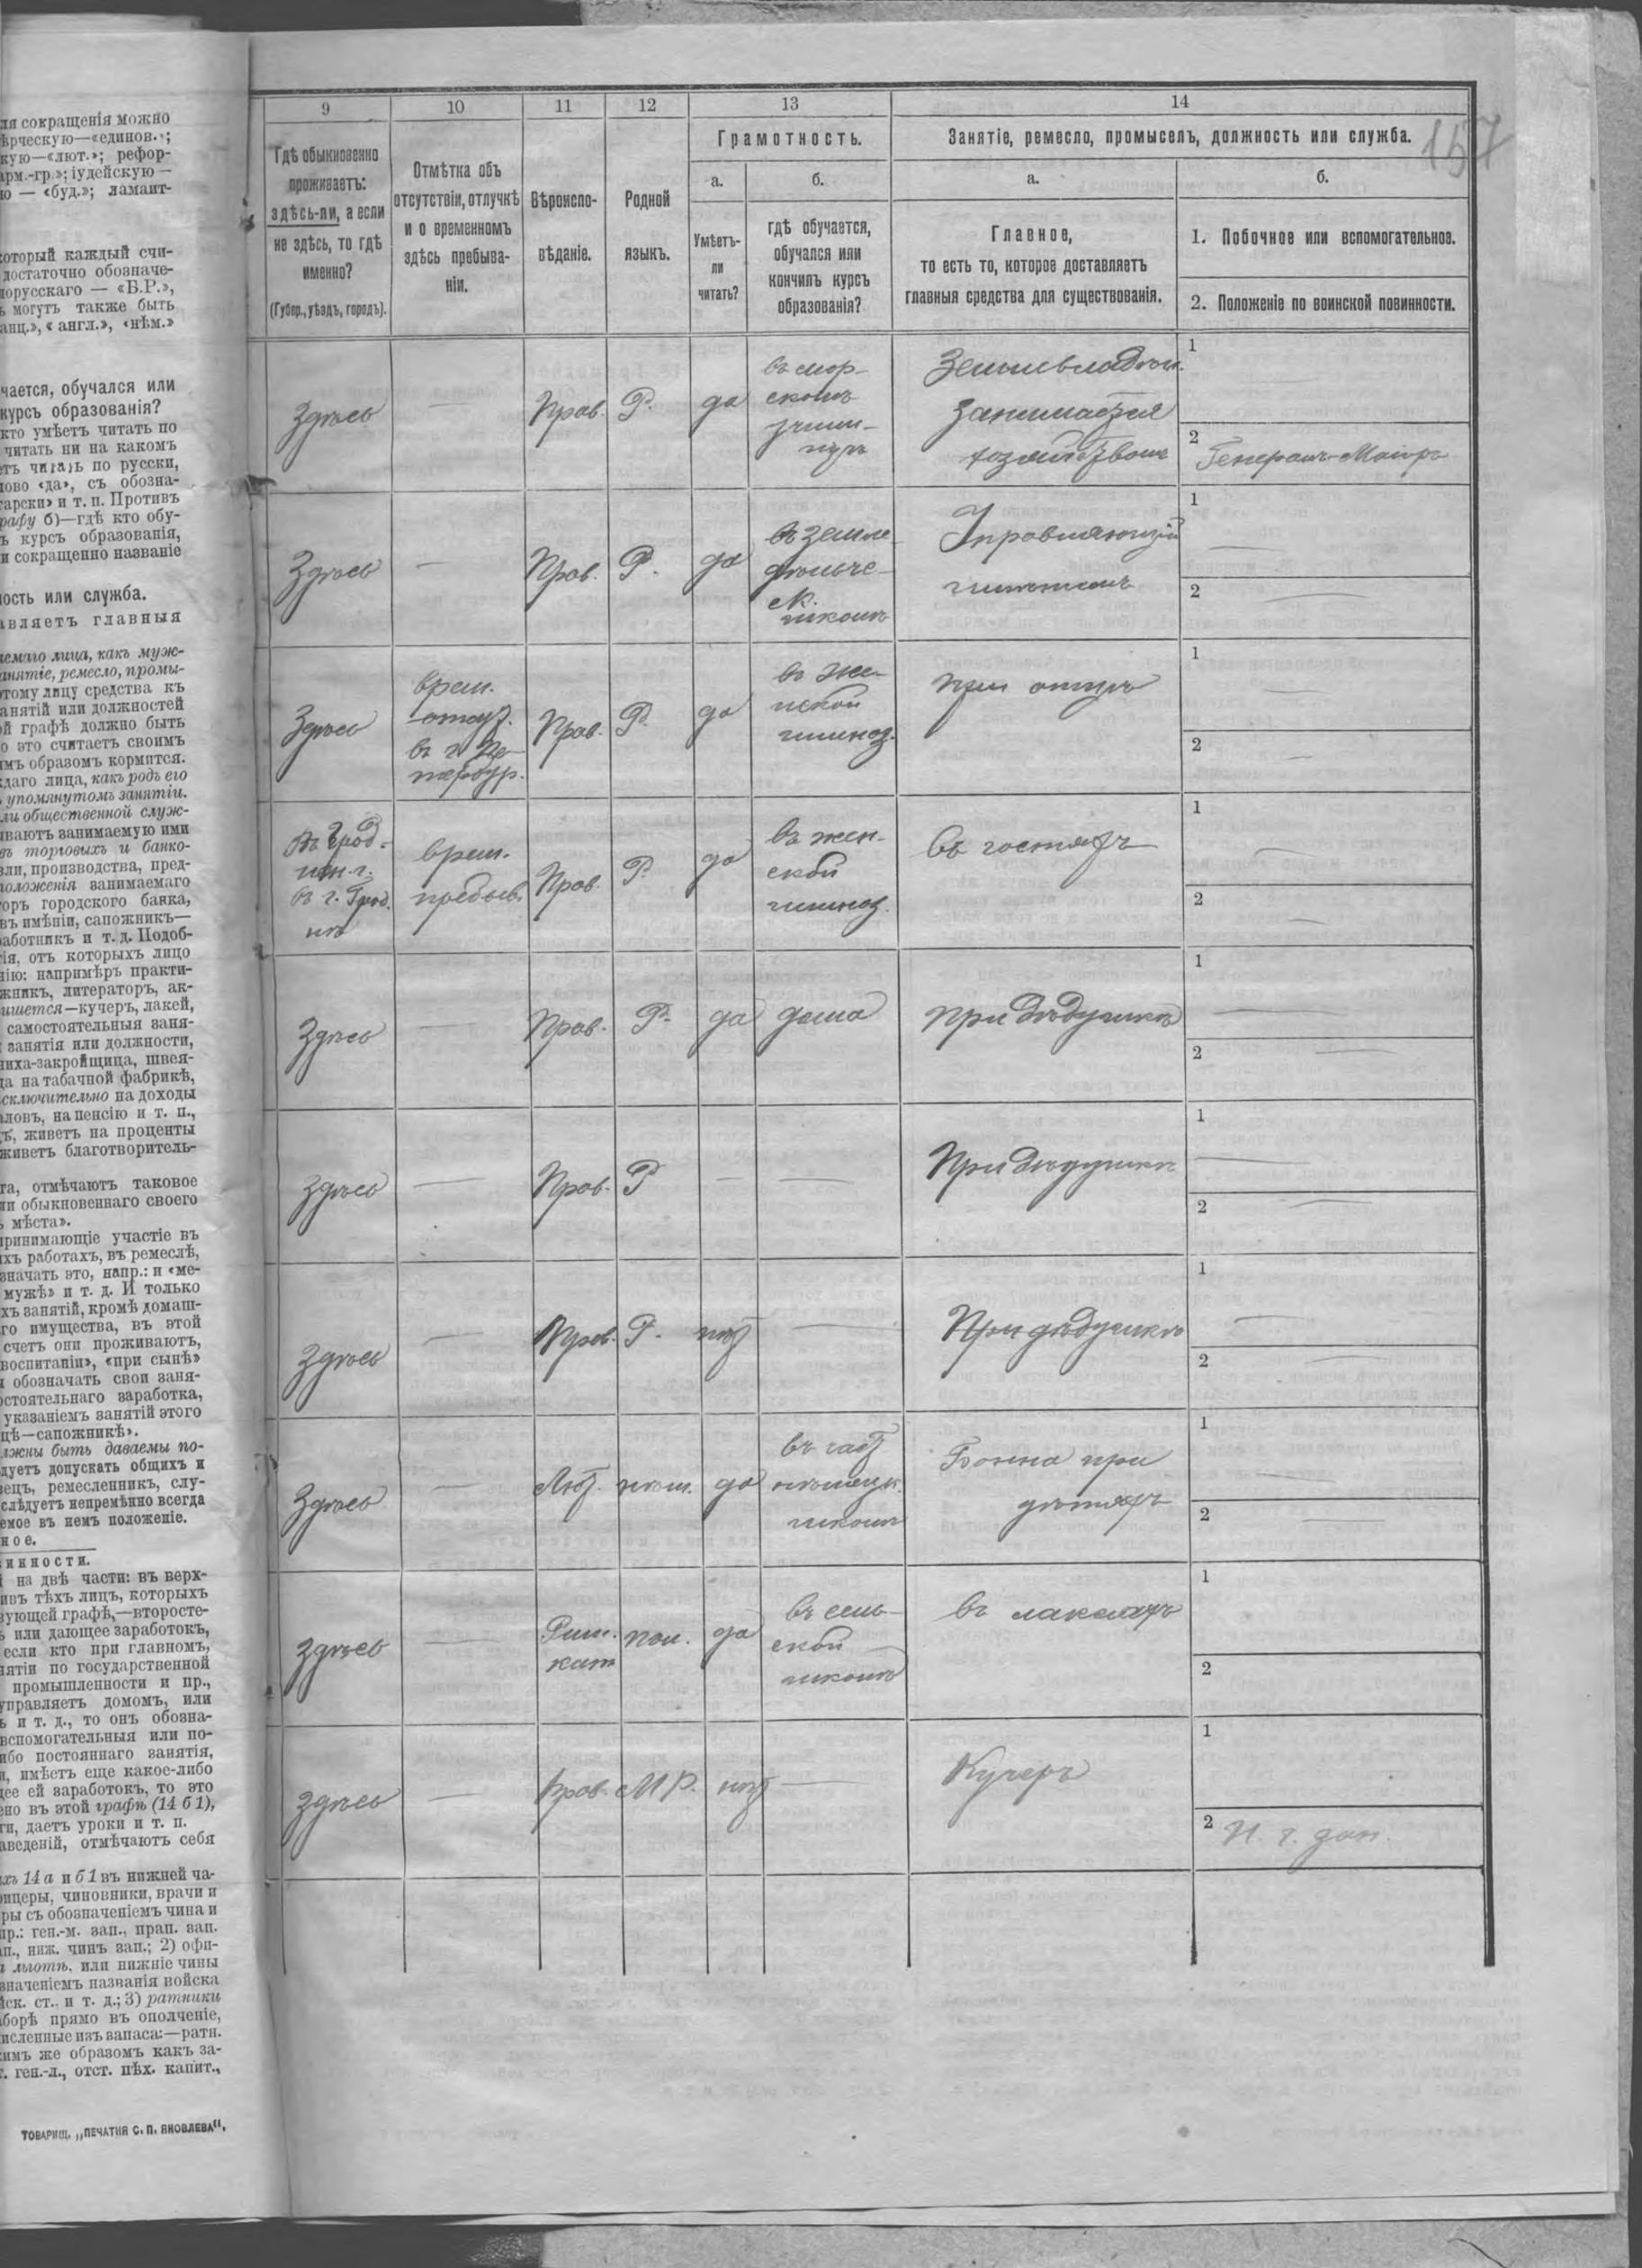 ля сокращенія можно
ѣрческую—«единов.»;
кую—«лют.»; рефор-
арм.-гр.»; іудейскую —
ю — «буд.»; ламаит-
который каждый счи-
достаточно обозначе-
лорусскаго — «Б.Р.»,
ь могутъ также быть
анц.», «англ.», «нѣм.»
чается, обучался или
курсъ образованія?
кто умѣетъ читать по
читать ни на какомъ
етъ читать по русски,
лово «да», съ обозна-
арски» и т. п. Противъ
рафу б)—гдѣ кто обу-
ъ курсъ образованія,
и сокращенно названіе
ность или служба.
авляетъ главныя
аемаго лица, какъ муж-
анятіе, ремесло, промы-
этому лицу средства къ
анятій или должностей
й графѣ должно быть
о это считаетъ своимъ
имъ образомъ кормится.
даго лица, какъ родъ его
упомянутомъ занятіи.
ли общественной служ-
ываютъ занимаемую ими
въ торговыхъ и банко-
вли, производства, пред-
положенія занимаемаго
оръ городского банка,
въ имѣніи, сапожникъ—
аботникъ и т. д. Подоб-
тія, отъ которыхъ лицо
нію: напримѣръ практи-
жникъ, литераторъ, ак-
ишется—кучеръ, лакей,
самостоятельныя заня-
занятія или должности,
ниха-закройщица, швея-
ца на табачной фабрикѣ,
сключительно на доходы
аловъ, на пенсію и т. п.,
ъ, живетъ на проценты
живетъ благотворитель-
та, отмѣчаютъ таковое
ли обыкновеннаго своего
мѣста».
принимающіе участіе въ
хъ работахъ, въ ремеслѣ,
значать это, напр.: и «ме-
мужѣ» и т. д. И только
хъ занятій, кромѣ домаш-
го имущества, въ этой
счетъ они проживаютъ,
воспитаніи», «при сынѣ»
обозначать свои заня-
остоятельнаго заработка,
указаніемъ занятій этого
цѣ—сапожникѣ».
лжны быть даваемы по-
дуетъ допускать общихъ и
вецъ, ремесленникъ, слу-
слѣдуетъ непремѣнно всегда
емое въ немъ положеніе.
ное.
инности.
на двѣ части: въ верх-
ивъ тѣхъ лицъ, которыхъ
вующей графѣ,—второсте-
или дающее заработокъ,
если кто при главномъ,
нятіи по государственной
промышленности и пр.,
управляетъ домомъ, или
ь и т. д., то онъ обозна-
вспомогательныя или по-
ибо постояннаго занятія,
и, имѣетъ еще какое-либо
щее ей заработокъ, то это
ено въ этой графѣ (14 б 1),
ги, даетъ уроки и т. п.
аведеній, отмѣчаютъ себя
хъ 14 а и б 1 въ нижней ча-
фицеры, чиновники, врачи и
ры съ обозначеніемъ чина и
пр.: ген.-м. зап., прап. зап.
ап., ниж. чинъ зап.; 2) офи-
льготѣ, или нижніе чины
значеніемъ названія войска
йск. ст., и т. д.; 3) ратники
аборѣ прямо въ ополченіе,
исленные изъ запаса:—ратн.
имъ же образомъ какъ за-
ген.-л., отст. пѣх. капит.,
ТОВАРИЩ. „ПЕЧАТНЯ С. П. ЯКОВЛЕВА“.
157
9 10 11 12 13 14
Гдѣ обыкновенно
проживаетъ:
здѣсь-ли, а если
не здѣсь, то гдѣ
именно?
(Губер., уѣздъ, городъ).
Отмѣтка объ
отсутствіи, отлучкѣ
и о временномъ
здѣсь пребыва-
ніи.
Вѣроиспо-
вѣданіе.
Родной
языкъ.
Грамотность.
а.
Умѣетъ-
ли
читать?
б.
гдѣ обучается,
обучался или
кончилъ курсъ
образованія?
Занятіе, ремесло, промыселъ, должность или служба.
а.
Главное,
то есть то, которое доставляетъ
главныя средства для существованія.
б.
1. Побочное или вспомогательное.
2. Положеніе по воинской повинности.
Здѣсь — Прав. Р. да
въ мор-
скомъ
учили-
щѣ
Землевладѣл.
занимается
хозяйствомъ
1
2 Генералъ-Маіоръ
Здѣсь — Прав. Р. да
въ земле-
дѣльче-
ск.
школѣ
Управляющій
имѣніемъ
1 —
2 —
Здѣсь
врем.
отсут.
въ г. Пе-
тербур.
Прав. Р. да
въ жен-
ской
гимназ.
при отцѣ
1 —
2 —
въ Грод-
нен. г.
въ г. Грод-
нѣ
врем.
пребыв.
Прав. Р. да
въ жен-
ской
гимназ.
въ гостяхъ
1 —
2 —
Здѣсь — Прав. Р. да дома при дѣдушкѣ
1 —
2 —
Здѣсь — Прав. Р — — При дѣдушкѣ
1 —
2 —
Здѣсь — Прав. Р. нѣт — При дѣдушкѣ
1 —
2 —
Здѣсь — Лют. нѣм. да
въ част
нѣмецк.
школѣ
Бонна при
дѣтяхъ
1 —
2 —
Здѣсь —
Рим.
кат
пол. да
въ сель-
ской
школѣ
въ лакеяхъ
1
2
Здѣсь — Прав. М Р. нѣт — Кучеръ
1
2 Н. ч. зап.